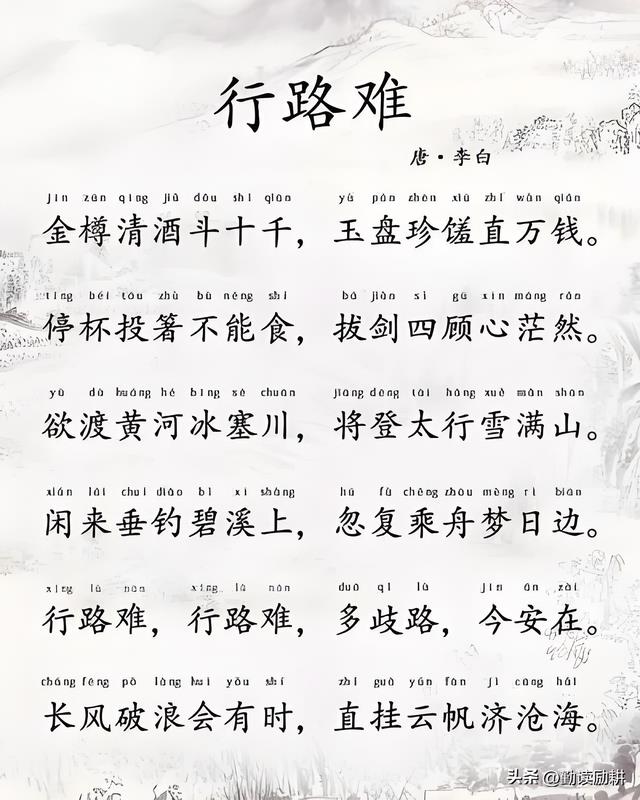 行路难
唐·李白
jīn zūn qīng jiǔ dǒu shí qiān yù pán zhēn xiū zhí wàn qián
金樽清酒斗十千，玉盘珍馐直万钱。
tíng bēi tóu zhù bù néng shí bá jiàn sì gù xīn máng rán
停杯投箸不能食，拔剑四顾心茫然。
yù dù huáng hé bīng sè chuān jiāng dēng tài háng xuě mǎn shān
欲渡黄河冰塞川，将登太行雪满山。
xián lái chuí diào bì xī shàng hū fù chéng zhōu mèng rì biān
闲来垂钓碧溪上，忽复乘舟梦日边。
xíng lù nán xíng lù nán duō qí lù jīn ān zài
行路难，行路难，多歧路，今安在。
cháng fēng pò làng huì yǒu shí zhí guà yún fān jì cāng hǎi
长风破浪会有时，直挂云帆济沧海。
头条 @勤读励耕